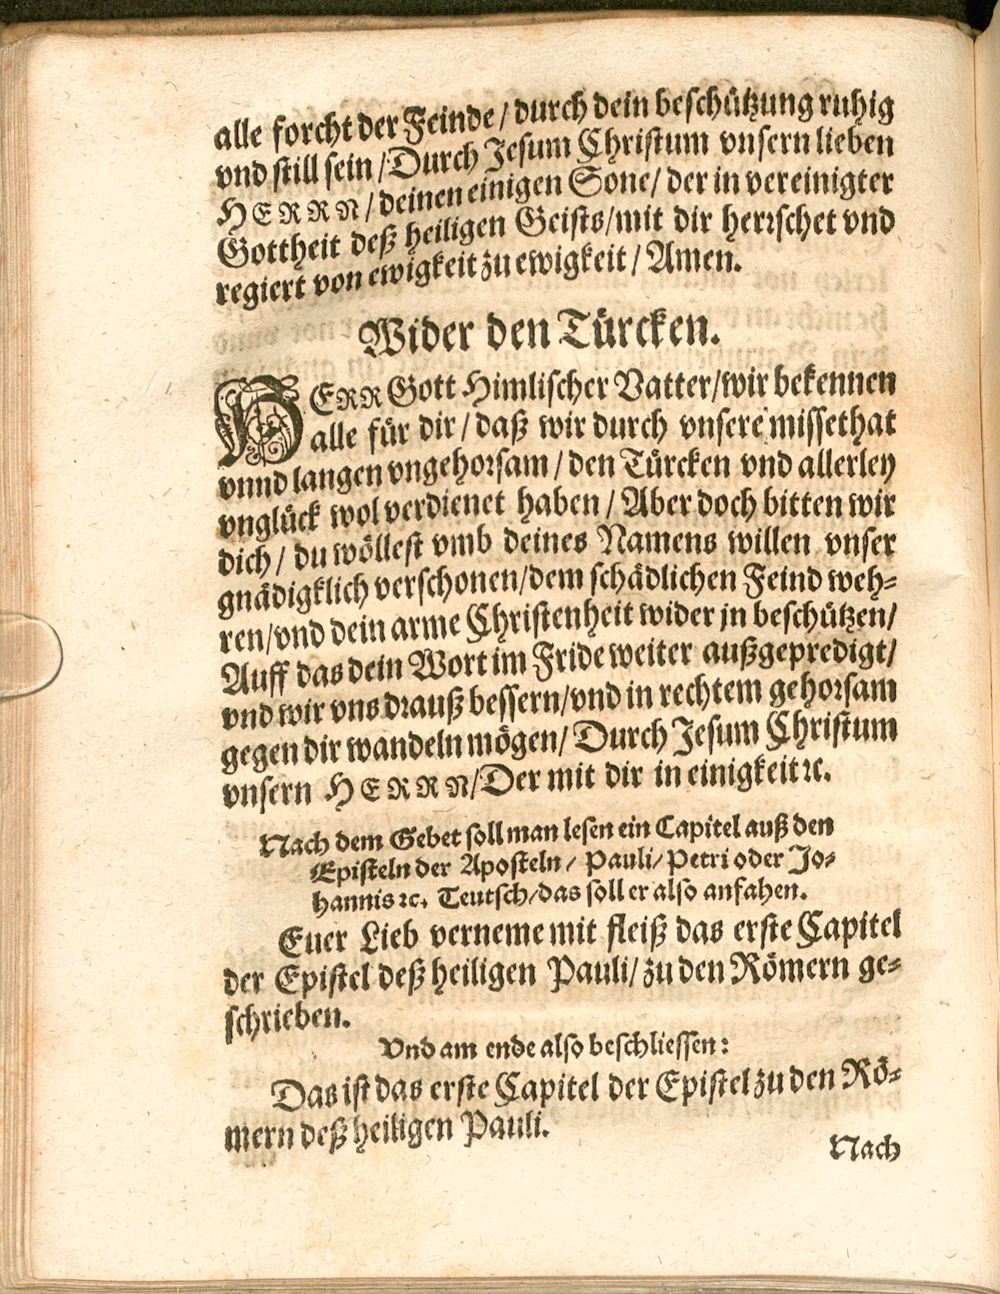 alle forcht der Feinde / durch dein beschützung ruhig
vnd still sein / Durch Jesum Christum vnsern lieben
HERRN / deinen einigen Sone / der in vereinigter
Gottheit deß heiligen Geists / mit dir herrschet vnd
regiert von ewigkeit zu ewigkeit / Amen.
Wider den Türcken.
HERR Gott Himlischer Vatter / wir bekennen
alle für dir / daß wir durch vnsere missethat
vnnd langen vngehorsam / den Türcken vnd allerley
vnglück wol verdienet haben / Aber doch bitten wir
dich / du wöllest vmb deines Namens willen vnser
gnädigklich verschonen / dem schädlichen Feind weh-
ren / vnd dein arme Christenheit wider jn beschützen /
Auff das dein Wort im Fride weiter außgepredigt /
vnd wir vns drauß bessern / vnd in rechtem gehorsam
gegen dir wandeln mögen / Durch Jesum Christum
vnsern HERRN / Der mit dir in einigkeit ꝛc.
Nach dem Gebet soll man lesen ein Capitel auß den
Episteln der Aposteln / Pauli / Petri oder Jo-
hannis ꝛc. Teutsch / das soll er also anfahen.
Euer Lieb verneme mit fleiß das erste Capitel
der Epistel deß heiligen Pauli / zu den Römern ge-
schrieben.
Vnd am ende also beschliessen:
Das ist das erste Capitel der Epistel zu den Rö-
mern deß heiligen Pauli.
Nach